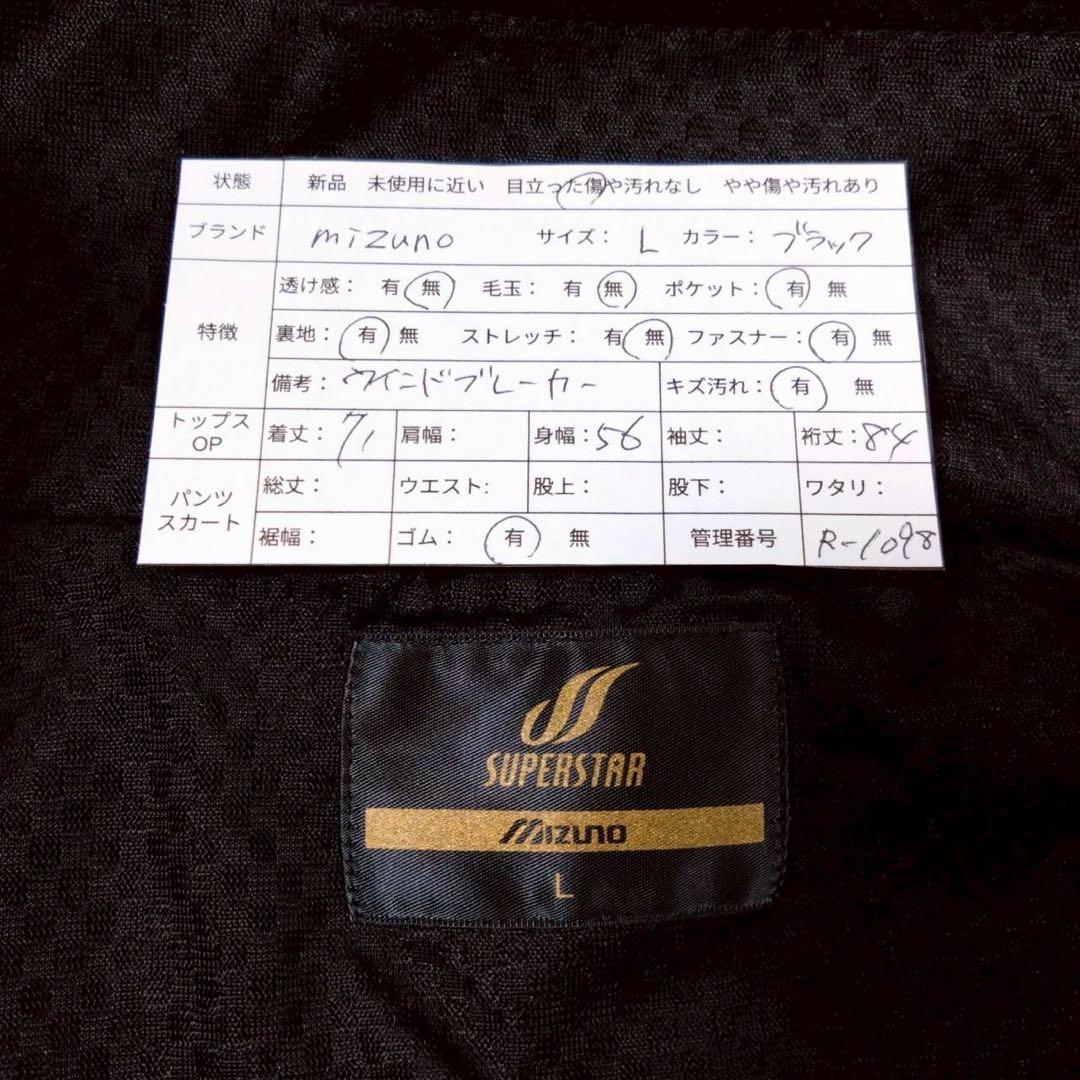 状態 新品 未使用に近い 目立った傷や汚れなし やや傷や汚れあり
ブランド mizuno サイズ： L カラー： ブラック
特徴
透け感： 有 無 毛玉： 有 無 ポケット： 有 無
裏地： 有 無 ストレッチ： 有 無 ファスナー： 有 無
備考： ウインドブレーカー キズ汚れ： 有 無
トップス
OP
着丈： 71 肩幅： 身幅： 56 袖丈： 裄丈： 84
パンツ
スカート
総丈： ウエスト: 股上： 股下： ワタリ：
裾幅： ゴム： 有 無 管理番号 R-1098
SUPERSTAR
MIZUNO
L